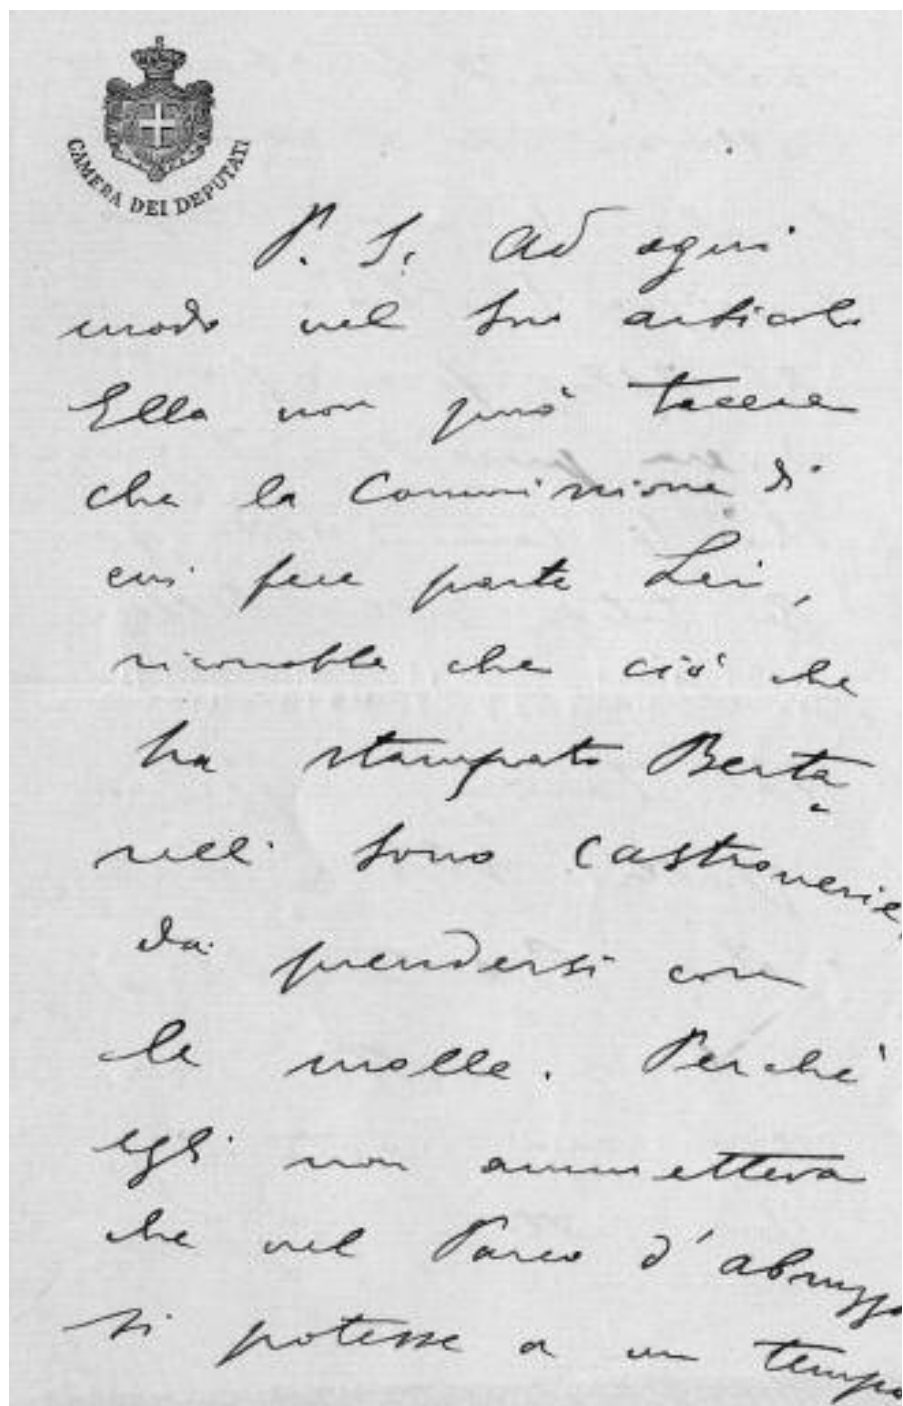 CAMERA DEI DEPUTATI
P. S. Ad ogni
modo nel Suo articolo
Ella non può tacere
che la Commissione di
cui fece parte Lei,
che ciò che
ha stampato Berta-
relli sono castronerie,
da prendersi con
le molle. Perchè
egli non ammetteva
che nel Parco d'Abruzzo
si potesse a un tempo